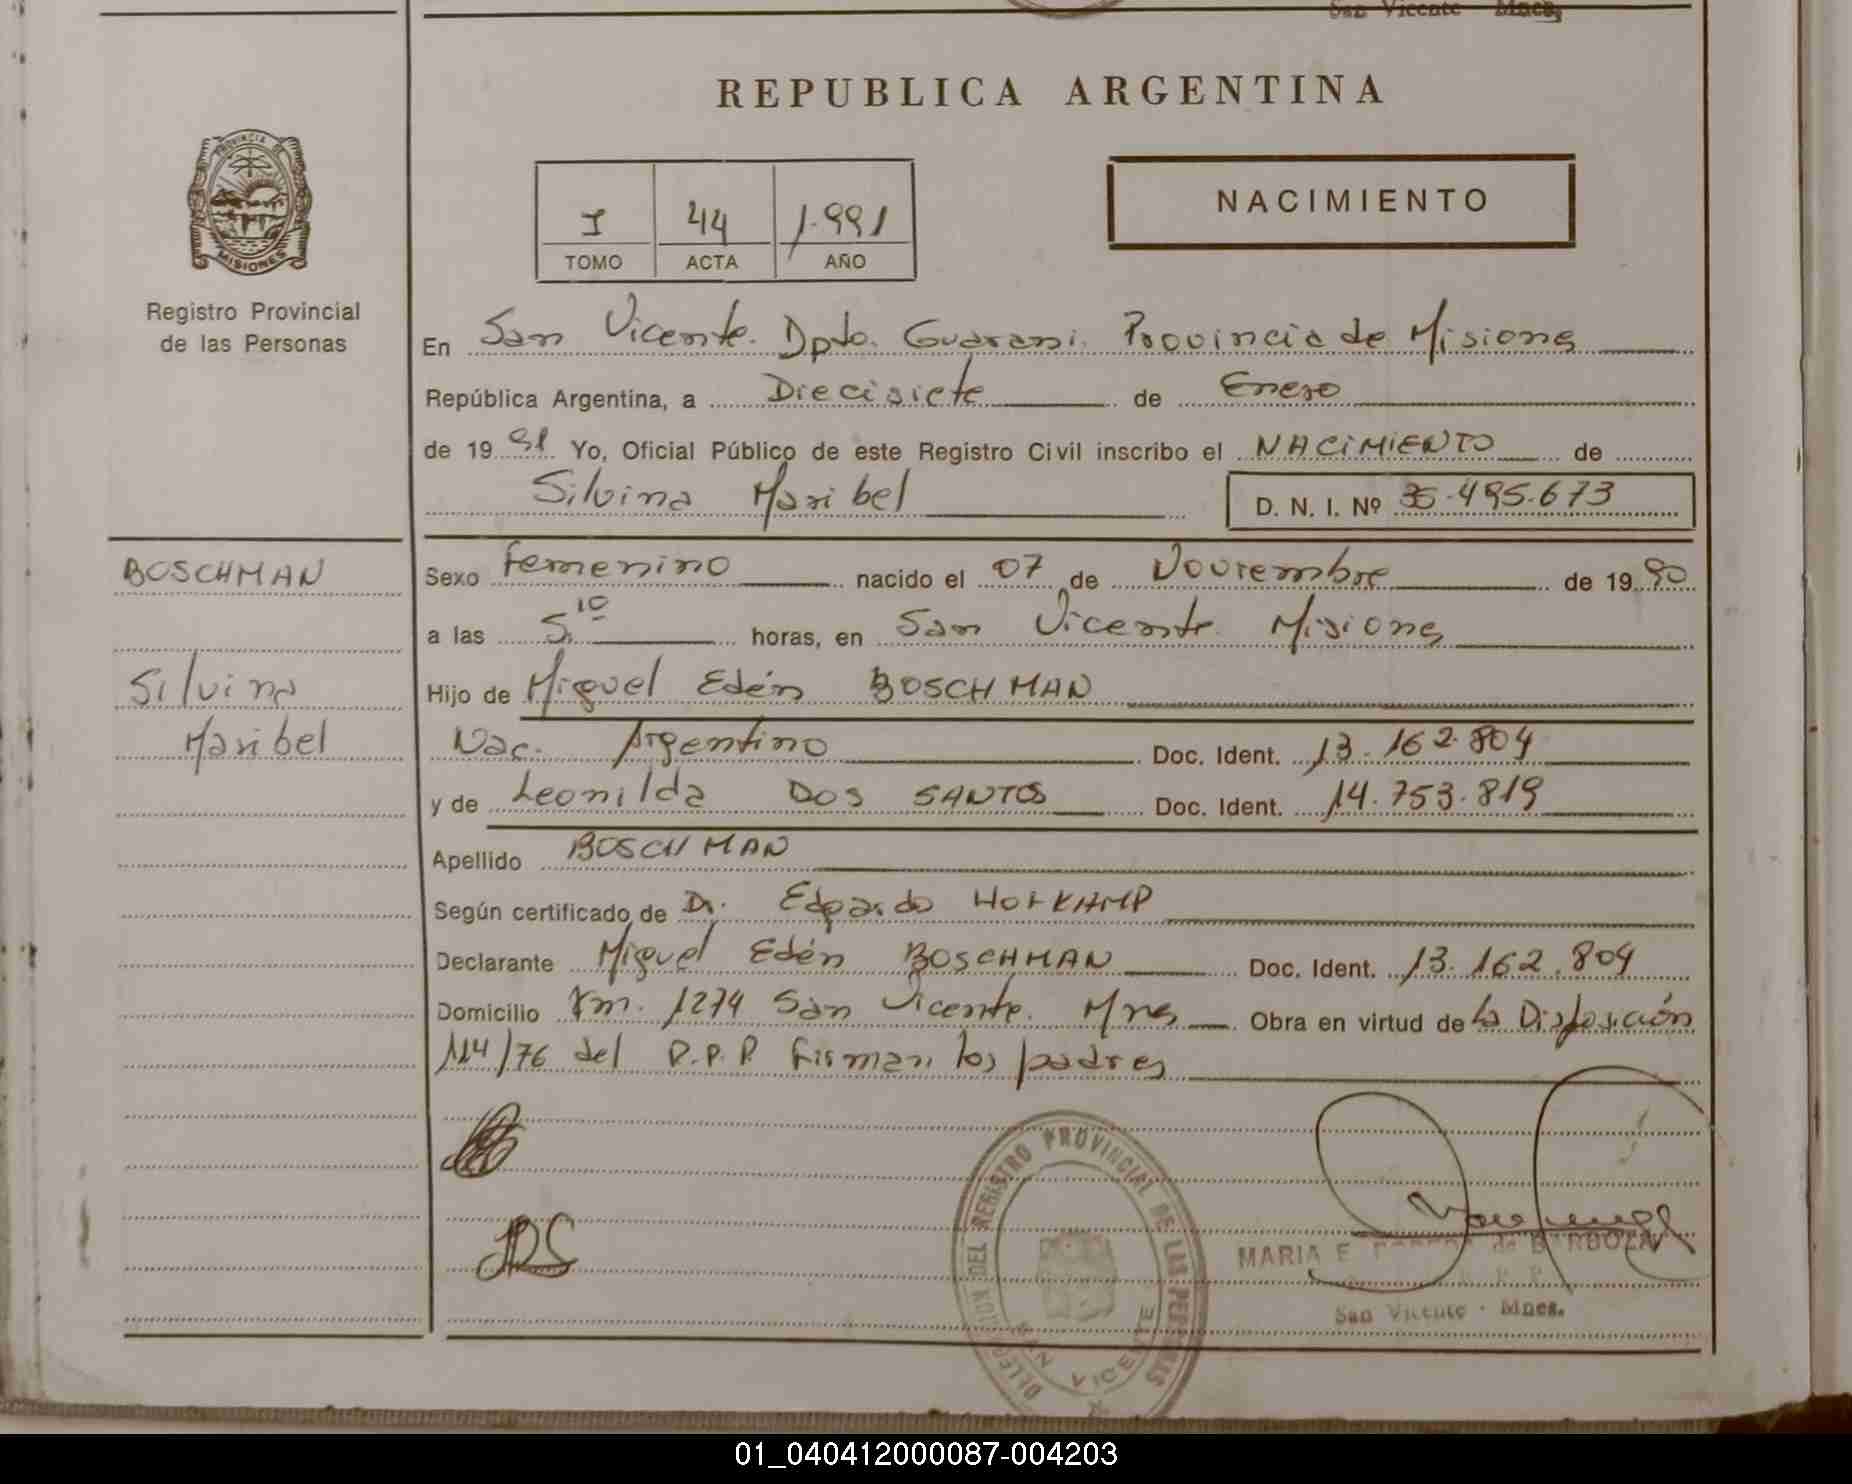 San Vicente - Mnes.
REPUBLICA ARGENTINA
PROVINCIA DE
MISIONES
Registro Provincial
de las Personas
I 44 1.991
TOMO ACTA AÑO
NACIMIENTO
En San Vicente. Dpto. Guarani. Provincia de Misiones
República Argentina, a Diecisiete de Enero
de 1991 Yo, Oficial Público de este Registro Civil inscribo el NACIMIENTO de
Silvina Maribel D. N. I. Nº 35.495.673
BOSCHMAN
Silvina
Maribel
Sexo femenino nacido el 07 de Noviembre de 1990
a las 5.10 horas, en San Vicente. Misiones
Hijo de Miguel Edén BOSCHMAN
Nac. Argentino Doc. Ident. 13.162.804
y de Leonilda DOS SANTOS Doc. Ident. 14.753.819
Apellido BOSCHMAN
Según certificado de Dr. Edgardo HOFKAMP
Declarante Miguel Edén BOSCHMAN Doc. Ident. 13.162.804
Domicilio Km. 1274 San Vicente. Mnes Obra en virtud de la Disposición
114/76 del R.P.P. firman los padres
DELEGACION DEL REGISTRO PROVINCIAL DE LAS PERSONAS
SAN VICENTE
MARIA E. de BARBOZA
San Vicente - Mnes.
01_040412000087-004203